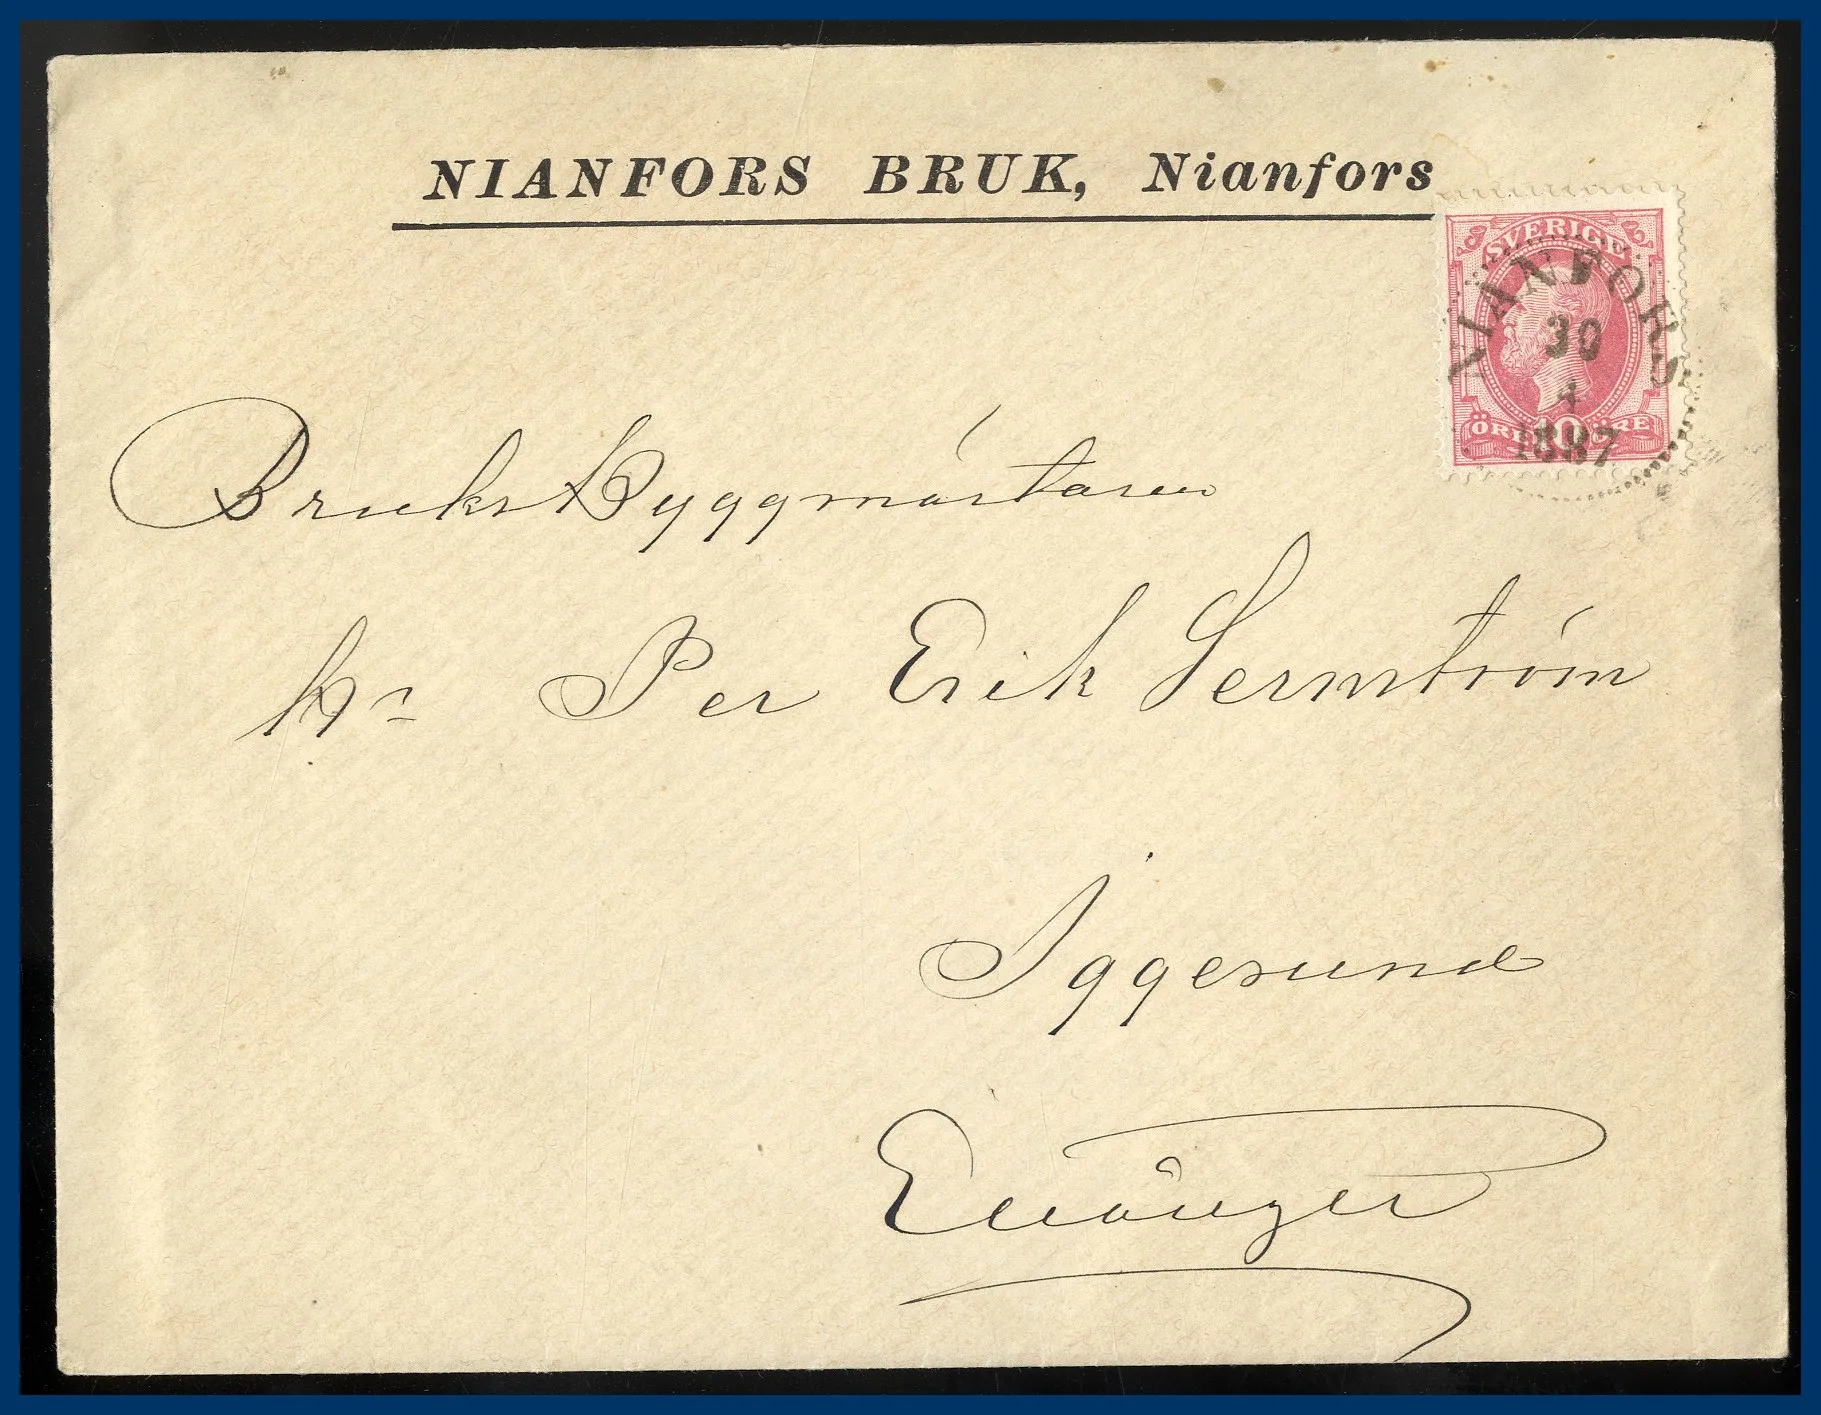 NIANFORS BRUK, Nianfors
SVERIGE
NIANFORS
30
4
1887
ÖRE 10 ÖRE
BruksByggmästaren
Hr Per Erik Sermström
Iggesund
Enånger